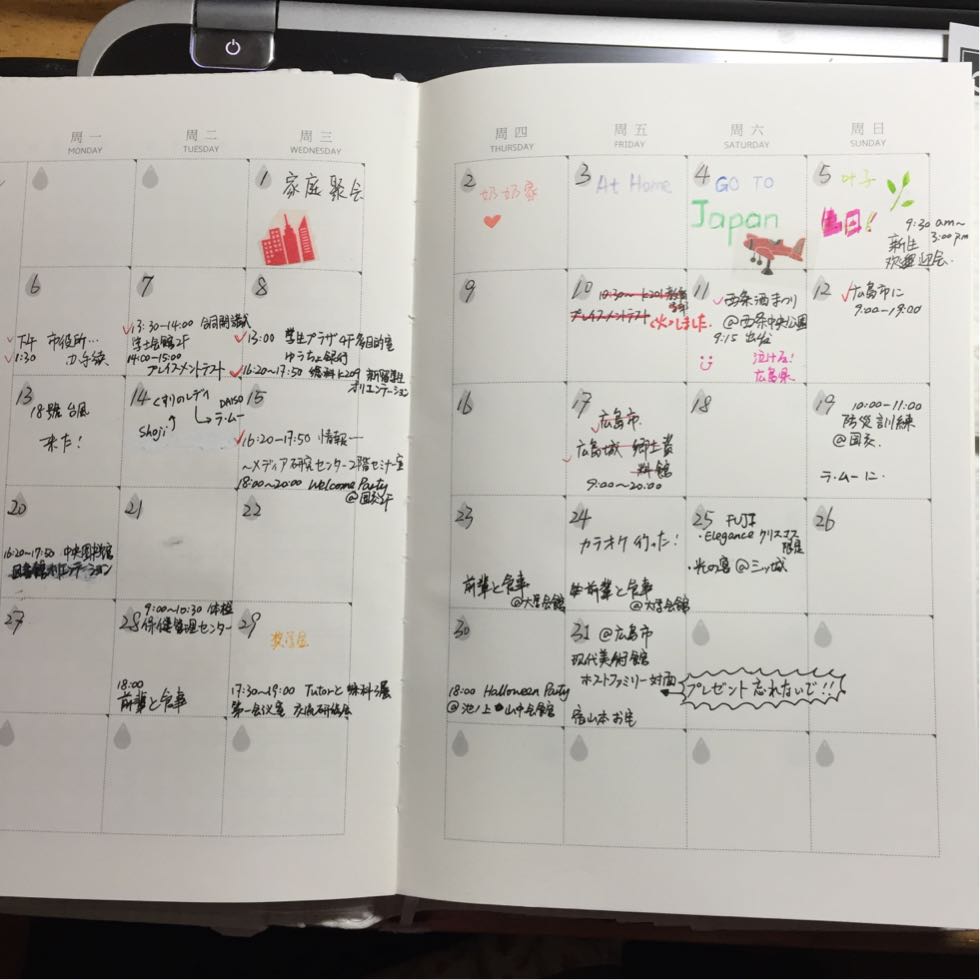 周一
MONDAY
周二
TUESDAY
周三
WEDNESDAY
周四
THURSDAY
周五
FRIDAY
周六
SATURDAY
周日
SUNDAY
1 家庭聚会
2 奶奶家
3 At Home
4 GO TO
Japan
5 叶子
生日!
9:30 am~
3:00 pm
新生
欢迎会.
6
下午 市役所…
1:30 力手続
7
13:30-14:00 合同開講式
学士会館2F
14:00-15:00
プレイスメントテスト
8
13:00 学生プラザ4F多目的室
ゆうちょ银行
16:20~17:50 総科K209 新留学生
オリエンテーション
9
10 10:30~ K201教室
プレイスメントテスト
しました.
11 西条酒まつり
@西条中央公園
9:15 出发
泣ける!
広島県
12 広島市に
9:00-19:00
13
18號 台風
来た!
14 くすりのレディ DAISO
Shoji ラ・ムー
15
16:20-17:50 情報一
~メディア研究センター2階セミナー室
18:00~20:00 Welcome Party
@国交2F
16
17
広島市.
広島城 郷土資
料館
9:00~20:00
18
19 10:00-11:00
防災訓練
@国交.
ラ・ムーに.
20
16:20~17:50 中央図書館
図書館オリエンテーション
21
22
23
前辈と食事
@大学会館
24
カラオケ 行った!
前辈と食事
@大学会館
25 FUJI
・Elegance クリスマス
限定
・光の宮 @三ツ城
26
27
28 9:00~10:30 体檢
保健管理センター
18:00
前辈と食事
29
歓迎会
17:30~19:00 Tutorと
第一会议室 交流研修会
30
18:00 Halloween Party
@池ノ上 山中会館
31 @広島市
現代美術館
ホストファミリー対面
プレゼント 忘れないで!!
宿山本お宅